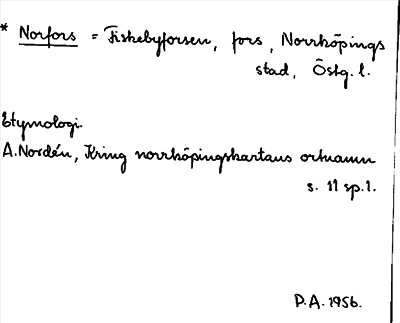 * Norfors = Fiskebyforsen, fors, Norrköpings
stad, Östg. l.
Etymologi.
A. Nordén, Kring norrköpingskartans ortnamn
s. 11 sp. 1.
P. A. 1956.